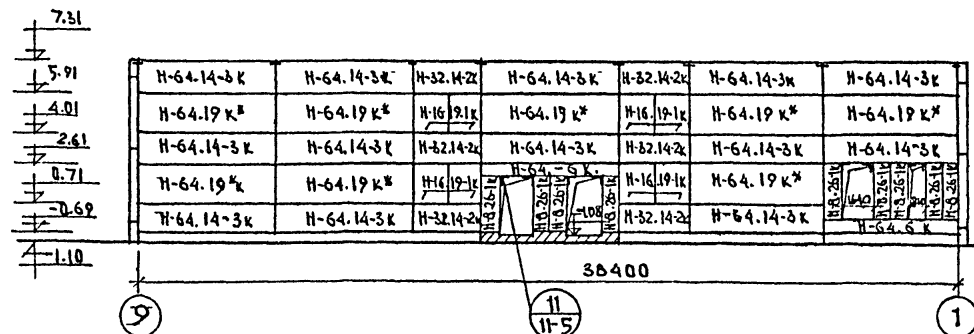 7.31
5.91
4.01
2.61
0.71
-0.69
-1.10
Н-64.14-3К Н-64.14-3К Н-32.14-2К Н-64.14-3К Н-32.14-2К Н-64.14-3К Н-64.14-3К
Н-64.19К* Н-64.19К* Н-16.19-1К Н-64.19К* Н-16.19-1К Н-64.19К* Н-64.19К*
Н-64.14-3К Н-64.14-3К Н-32.14-2К Н-64.14-3К Н-32.14-2К Н-64.14-3К Н-64.14-3К
Н-64.19*К Н-64.19К* Н-16.19-1К Н-64 -6К. Н-16.19-1К Н-64.19К*
Н-8.26-1К Н-8.26-1К Н-8.26-1К Н-8.26-1К Н-8.26-1К Н-8.26-1К Н-8.26-1К Н-8.26-1К
-1.08
Н-64.14-3К Н-64.14-3К Н-32.14-2К Н-32.14-2К Н-64.14-3К Н-64.6К
38400
9
11
11-5
1